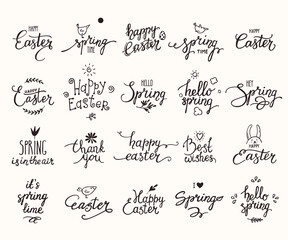 HAPPY
Easter
spring
TIME
happy
Easter
Spring
TIME
HAPPY
Easter
HAPPY
Easter
HAPPY
EASTER
HELLO
Spring
hello
spring
HEY
Spring
SPRING
is in the air
thank
you
happy
easter
Best
wishes
HAPPY
Easter
it's
spring
time
Easter
Happy
Easter
I
Spring
hello
spring